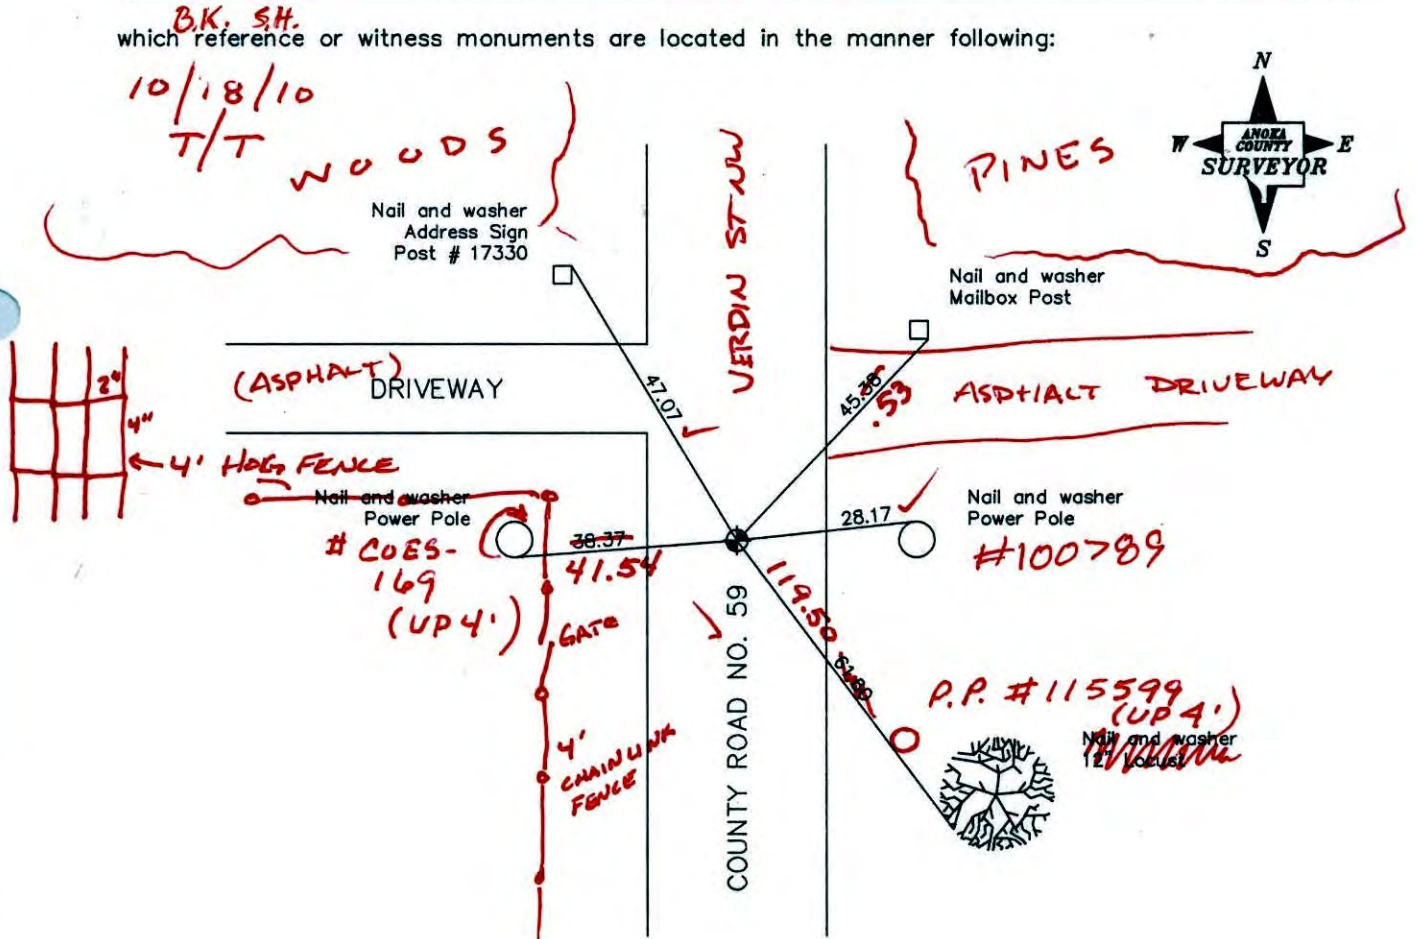 B.K. S.H.
which reference or witness monuments are located in the manner following:
10/18/10
T/T
WOODS
VERDIN ST NW
PINES
N
W
E
S
ANOKA
COUNTY
SURVEYOR
Nail and washer
Address Sign
Post # 17330
Nail and washer
Mailbox Post
2"
4"
(ASPHALT)
DRIVEWAY
47.07
45.38
.53
ASPHALT DRIVEWAY
4' HOG FENCE
Nail and washer
Power Pole
# COES-
169
(UP 4')
38.37
41.54
28.17
Nail and washer
Power Pole
#100789
GATE
119.50
COUNTY ROAD NO. 59
P.P. #115599
(UP 4')
Nail and washer
12" Locust
4'
CHAIN LINK
FENCE